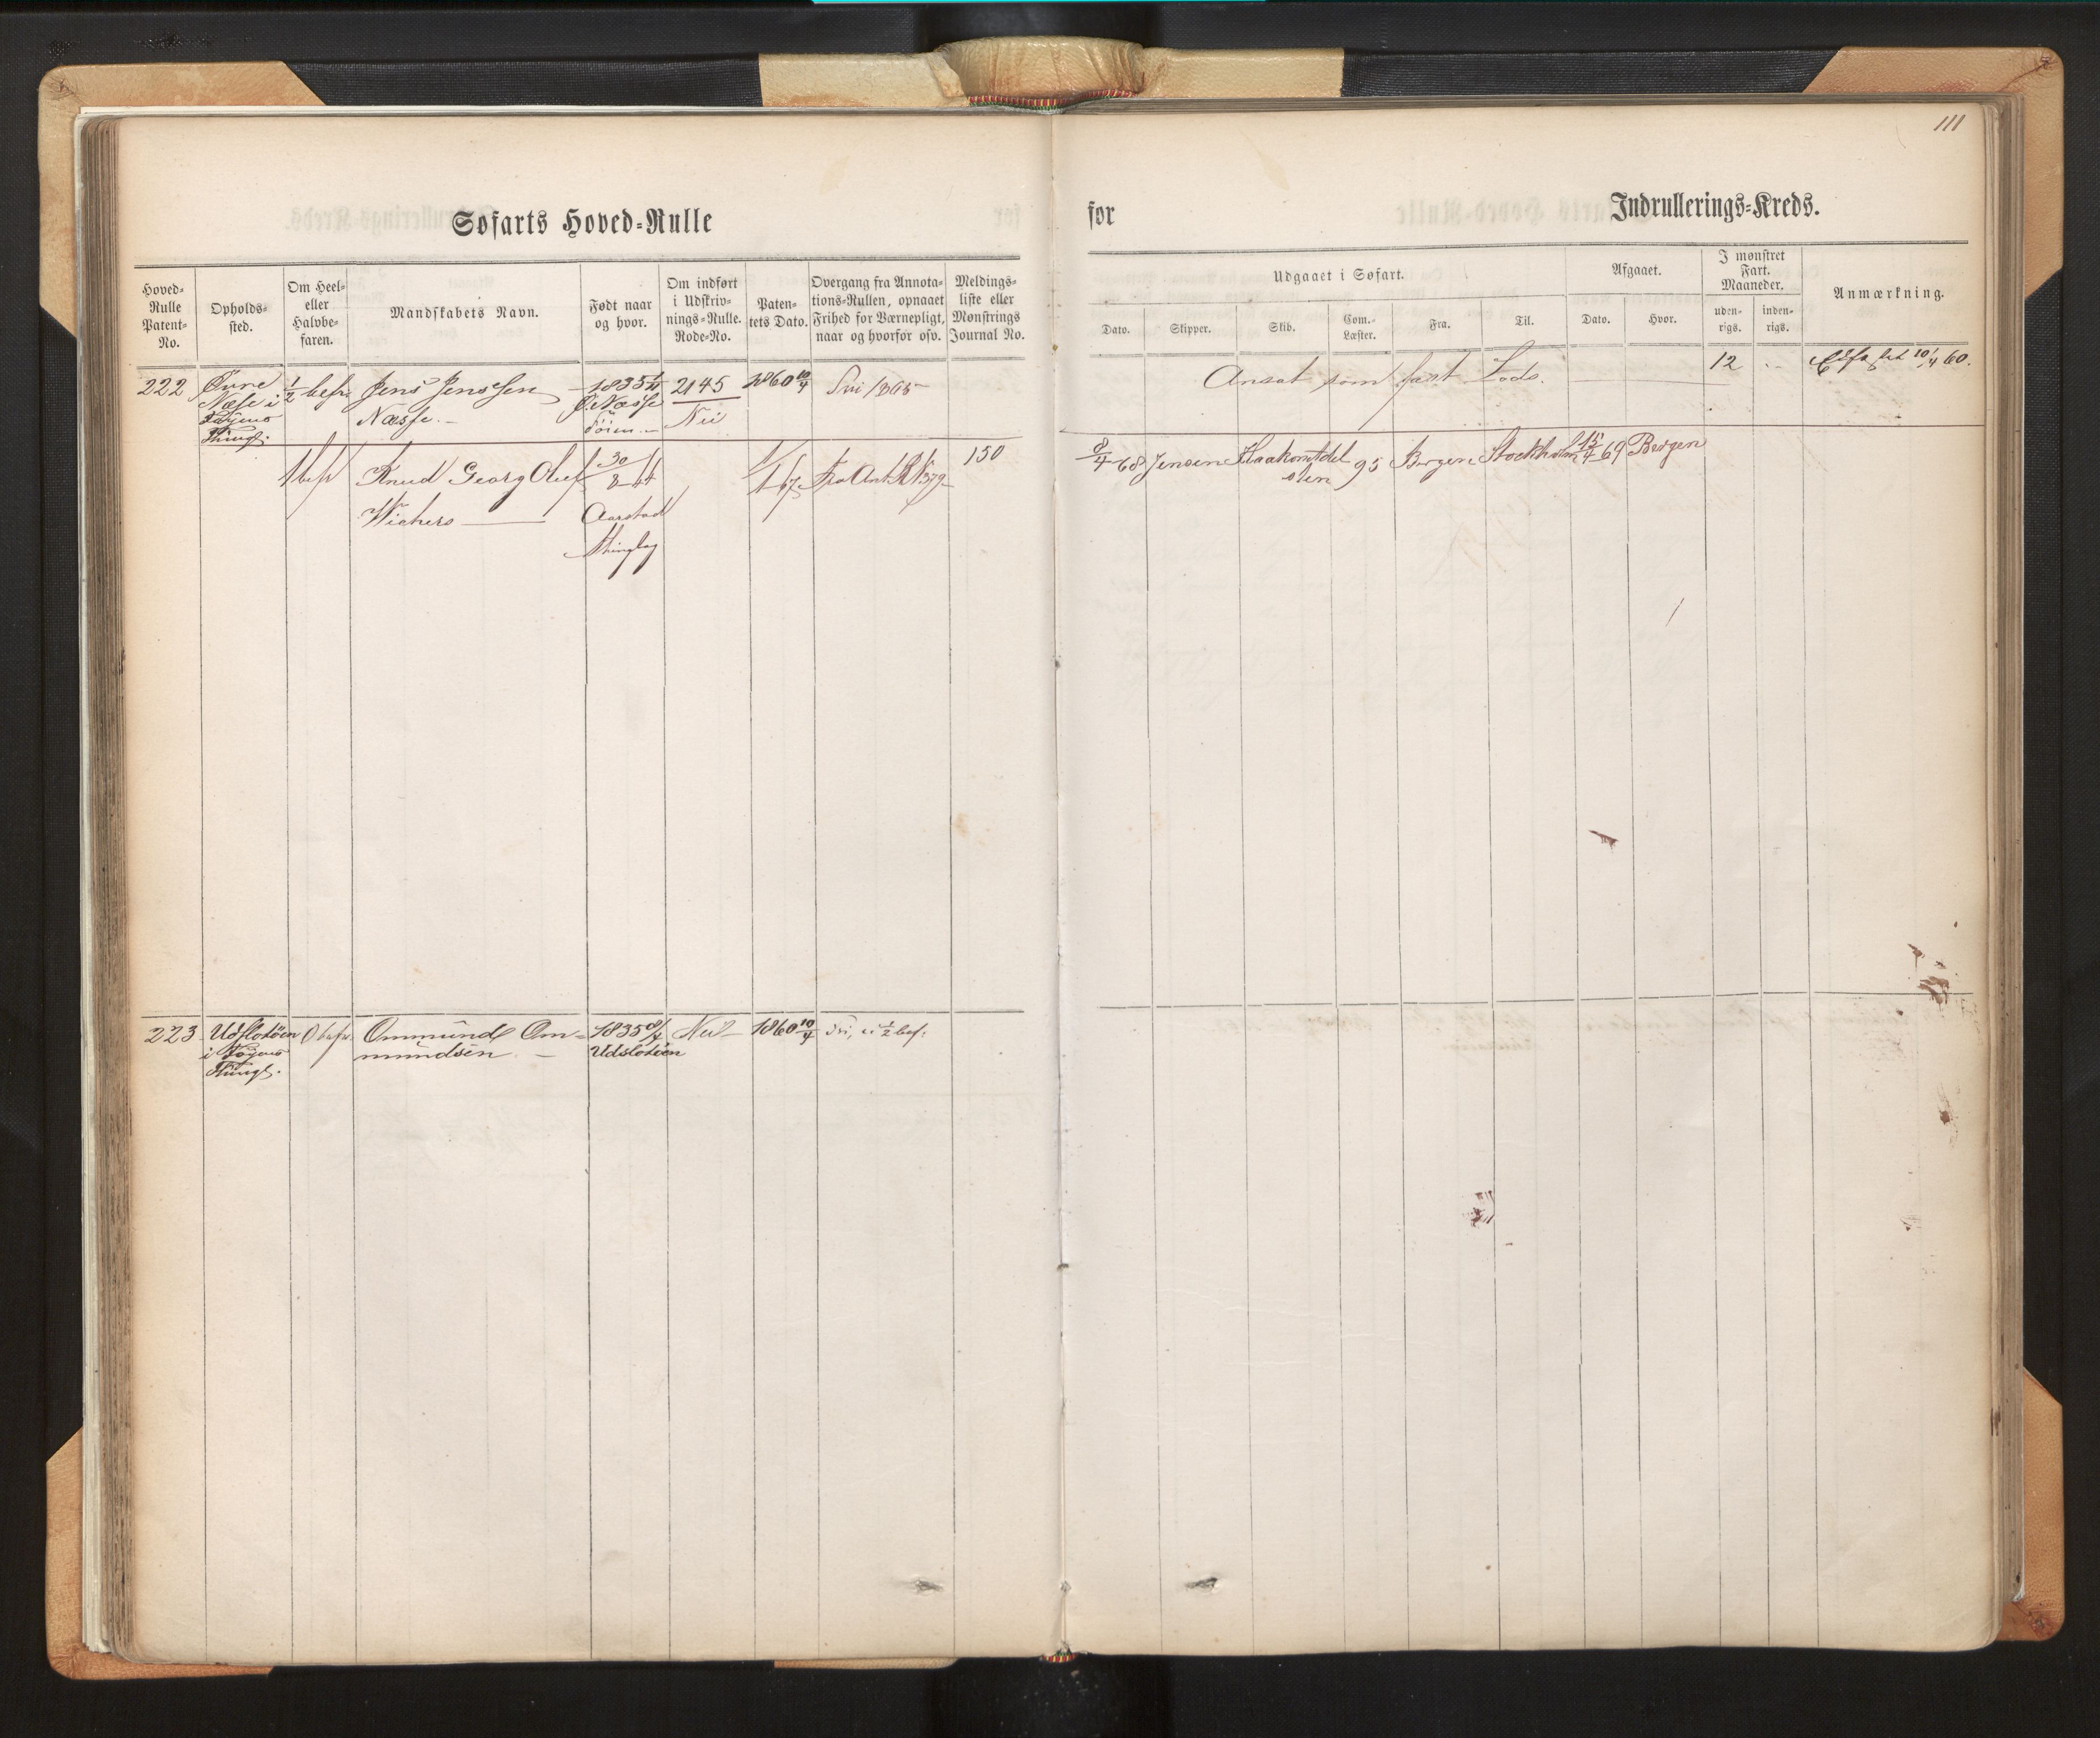 111
Søfarts Hoved-Rulle
for
Indrullerings-Kreds.
Hoved-
Rulle
Patent-
No.
Opholds-
sted.
Om Heel-
eller
Halvbe-
faren.
Mandskabets Navn.
Født naar
og hvor.
Om indført
i Udskriv-
nings-Rulle.
Rode-No.
Paten-
tets Dato.
Overgang fra Annota-
tions-Rullen, opnaaet
Frihed for Værnepligt,
naar og hvorfor osv.
Meldings-
liste eller
Mønstrings
Journal No.
Udgaaet i Søfart.
Dato.
Skipper.
Skib.
Com.-
Læster.
Fra.
Til.
Afgaaet.
Dato.
Hvor.
I mønstret
Fart.
Maaneder.
uden-
rigs.
inden-
rigs.
Anmærkning.
222
Øvre
Næse i
Thingl.
1/2 befr.
Jens Jenssen
Næsse.
1835
Næsse
2145
Nei
1860 10/4
Ansat som fast Lods.
12
10/4 60.
Knud Georg Oluf
Wichers
30/8 44
Aarstad
Thinglag
Fra Ant. R.
150
8/4 68
Jensen
Haakon Adel
sten
95
Bergen
Stockholm
15/4 69
Bergen
223
Udsloføen
i
Thingl.
Ommund Om-
mundsen
1835
Nei
1860 10/4
1/2 bef.